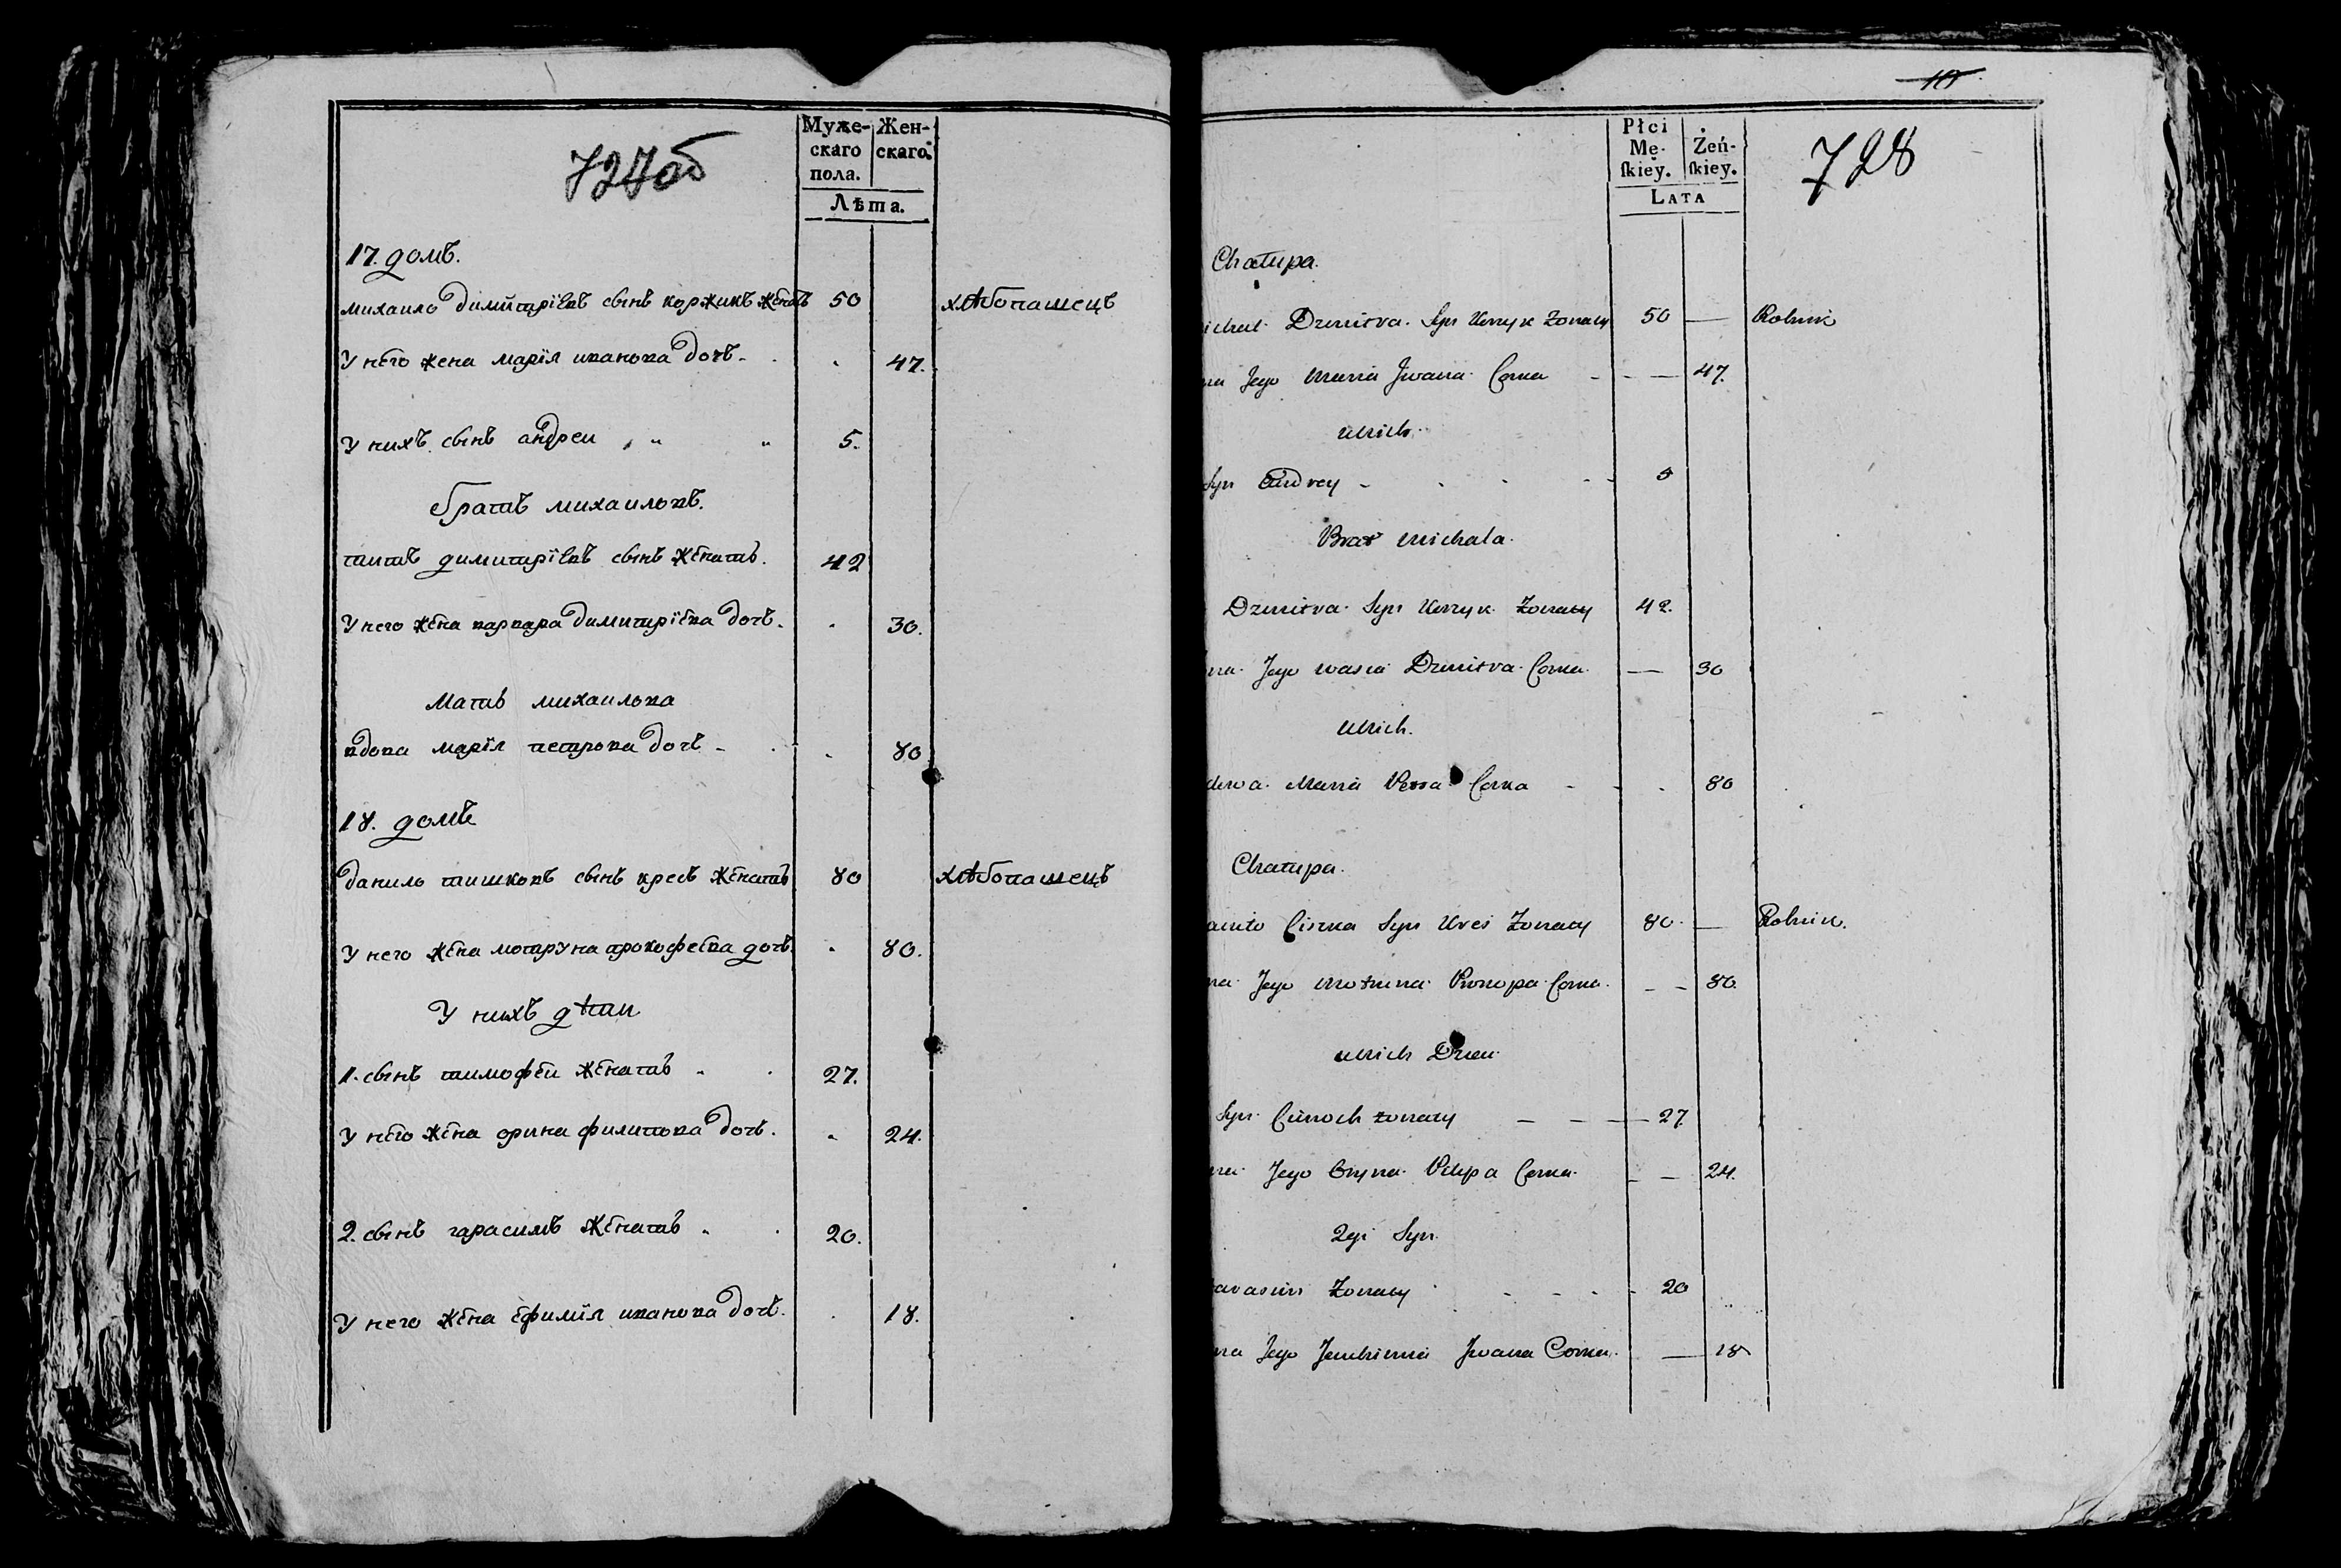 727об
Муже-
скаго
пола.
Жен-
скаго.
Лѣта.
17. домъ.
михаило димитріевъ сынъ коржикъ женатъ 50 хлѣбопашецъ
У него жена марія иванова дочь - 47.
У нихъ сынъ андреи 5.
братъ михаиловъ.
титъ димитріевъ сынъ женатъ. 42
У него жена варвара димитріева дочь. 30.
Мать михаилова
вдова марія петрова дочь - 80
18. домъ
данило тишковъ сынъ кресъ женатъ 80 хлѣбопашецъ
У него жена мотруна прокофеева дочь. 80.
У нихъ дѣти
1. сынъ тимофеи женатъ 27.
У него жена орина филипова дочь. 24.
2. сынъ гарасимъ женатъ 20.
У него жена ефимія иванова дочь. 18.
10
728
Płci
Mę-
skiey.
Żeń-
skiey.
Lata
Chałupa.
ichał Dzmitra Syn Korzyk Żonaty 50 — Rolnik
na Jego Maria Jwana Corka - - — 47.
u nich
Syn Andrey - 5
Brat Michała.
Dzmitra Syn Korzyk Żonaty 42.
na Jego Wasia Dzmitra Corka — 30
u nich.
dowa Maria Petra Corka - 80
Chałupa.
aniło Ciszka Syn Kres Żonaty 80 — Rolnik.
na Jego Motruna Prokopa Corka - - 80.
u nich Dzieci
Syn Cimoch żonaty — — — 27
na Jego Oryna Pilipa Corka - — 24.
2gi Syn
arasim Żonaty - 20
na Jego Jewchimia Jwana Corka — 18